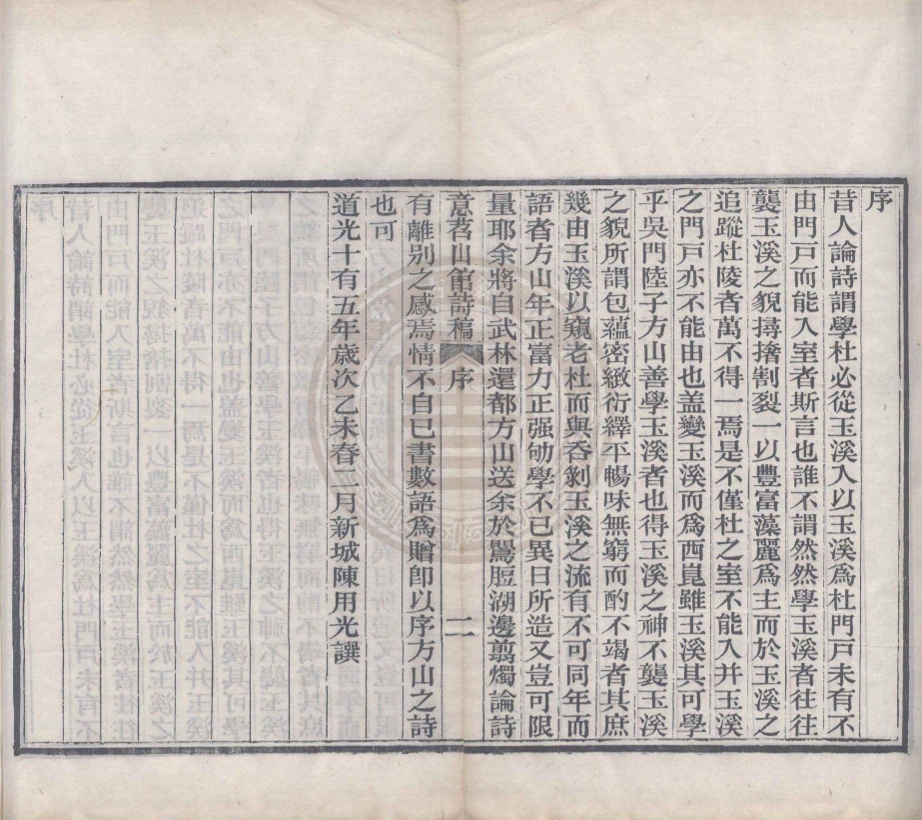 序
昔人論詩謂學杜必從玉溪入以玉溪爲杜門戸未有不
由門戸而能入室者斯言也誰不謂然然學玉溪者往往
襲玉溪之貌撏撦割裂一以豐富藻麗爲主而於玉溪之
追蹤杜陵者萬不得一焉是不僅杜之室不能入并玉溪
之門戸亦不能由也盖變玉溪而爲西崑雖玉溪其可學
乎吳門陸子方山善學玉溪者也得玉溪之神不襲玉溪
之貌所謂包蘊密緻衍繹平暢味無窮而酌不竭者其庶
幾由玉溪以窺老杜而與吞剝玉溪之流有不可同年而
語者方山年正富力正强劬學不已異日所造又豈可限
量耶余將自武林還都方山送余於鸎脰湖邊翦燭論詩
意苕山館詩稿 序 二
有離別之感焉情不自已書數語爲贈卽以序方山之詩
也可
道光十有五年歲次乙未春三月新城陳用光譔